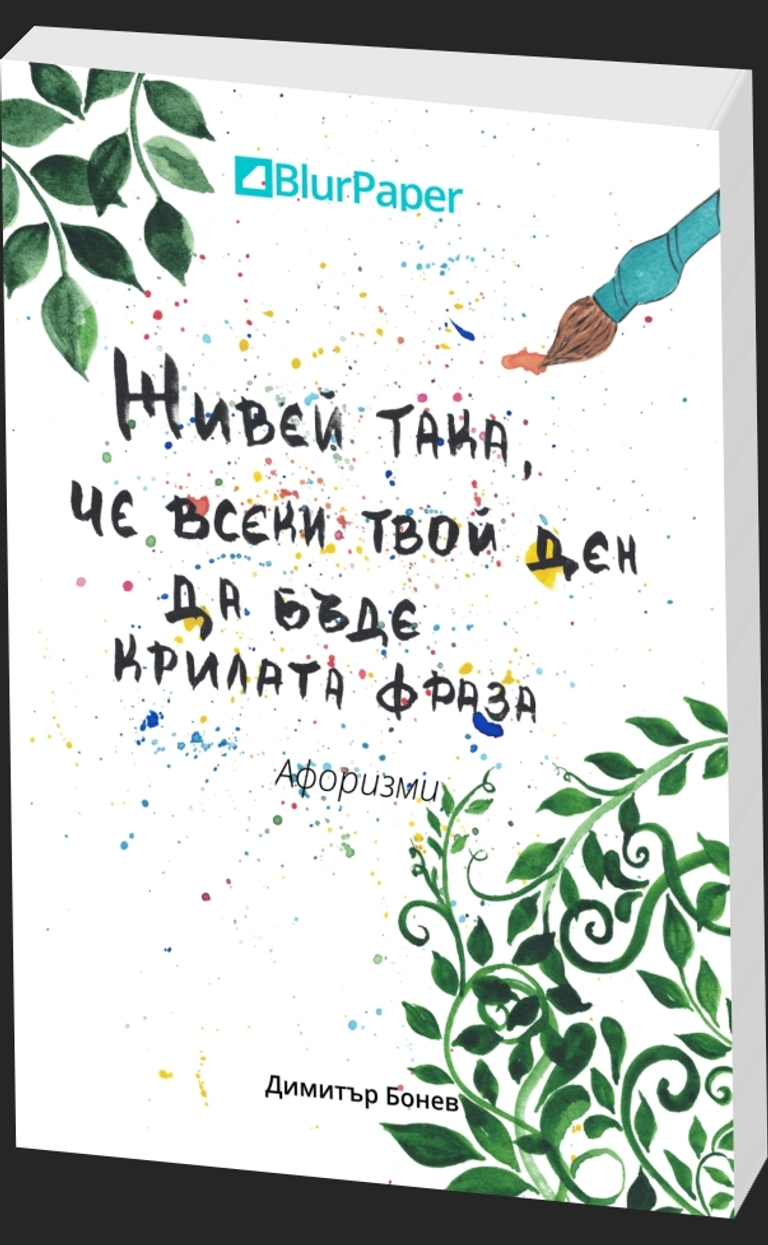 BlurPaper
Живей така,
че всеки твой ден
да бъде
крилата фраза
Афоризми
Димитър Бонев